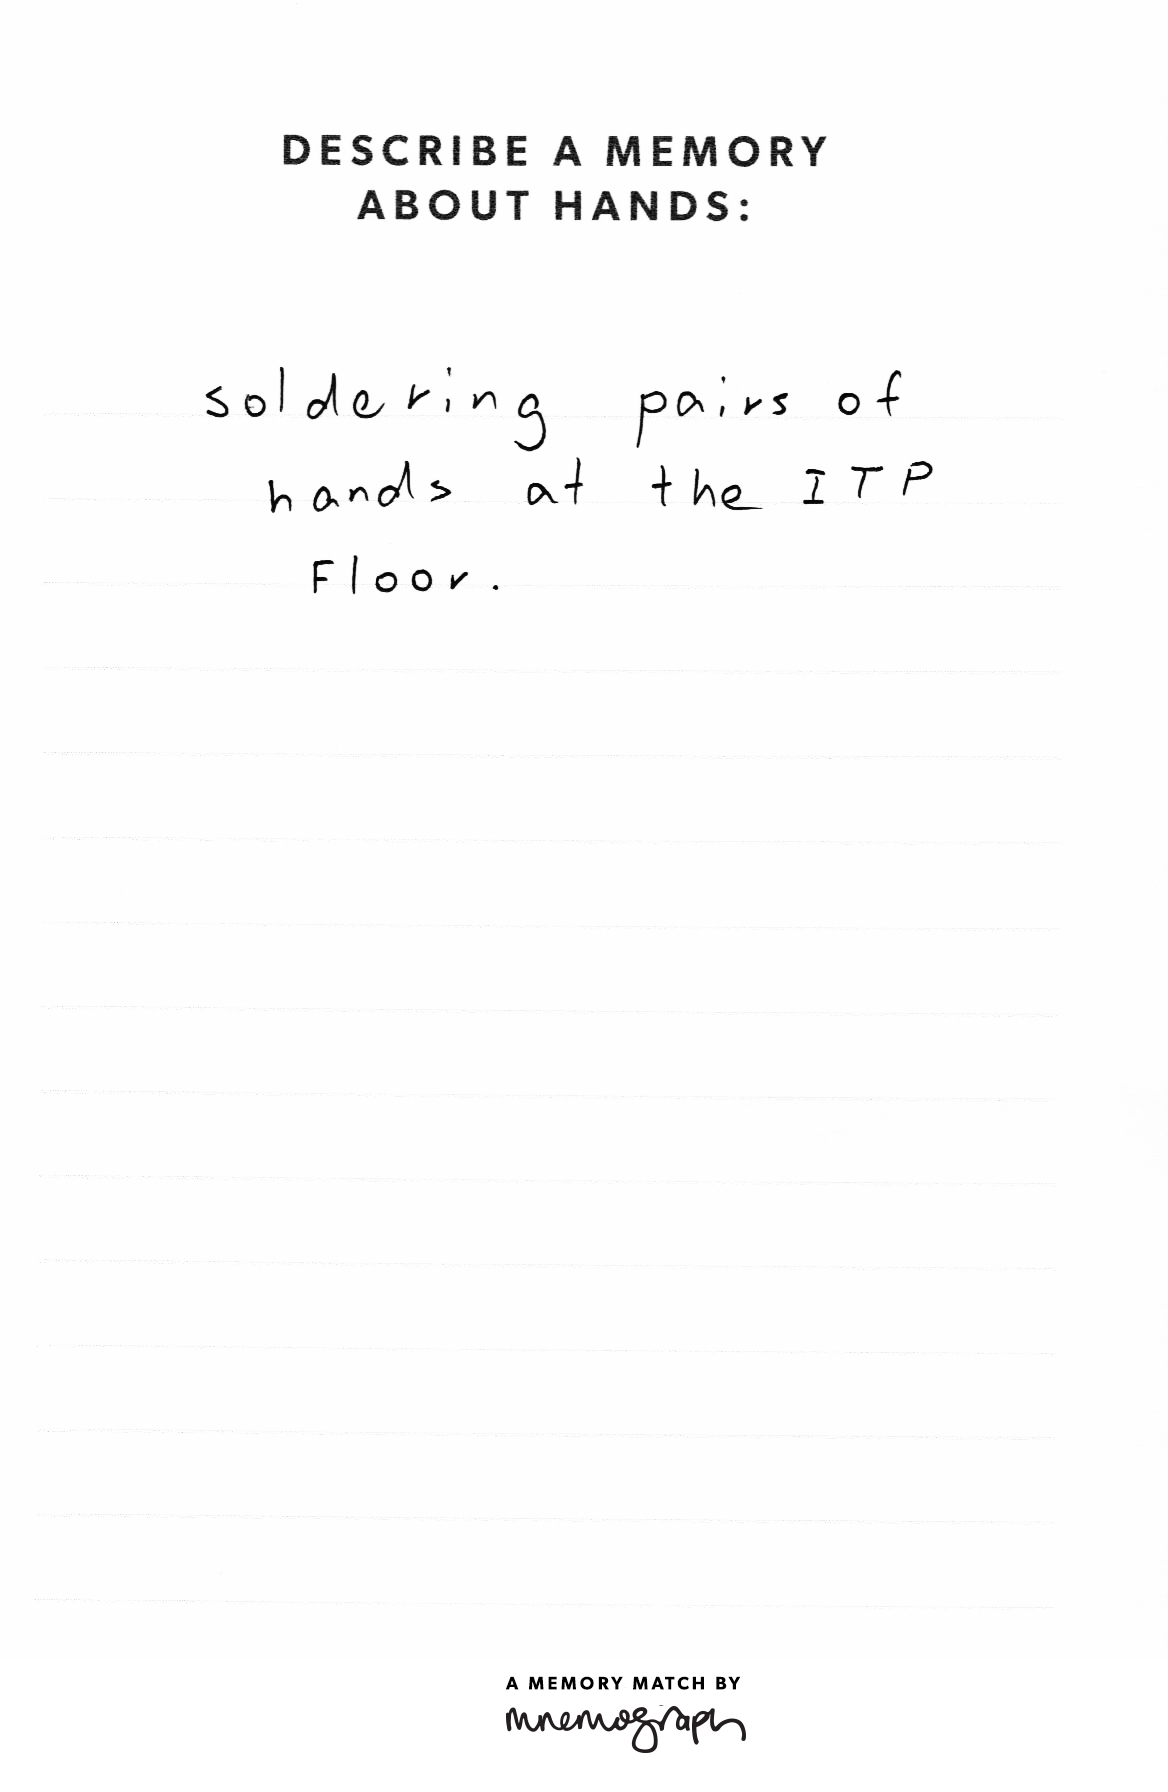 DESCRIBE A MEMORY
ABOUT HANDS:
soldering pairs of
hands at the ITP
Floor.
A MEMORY MATCH BY
mnemograph